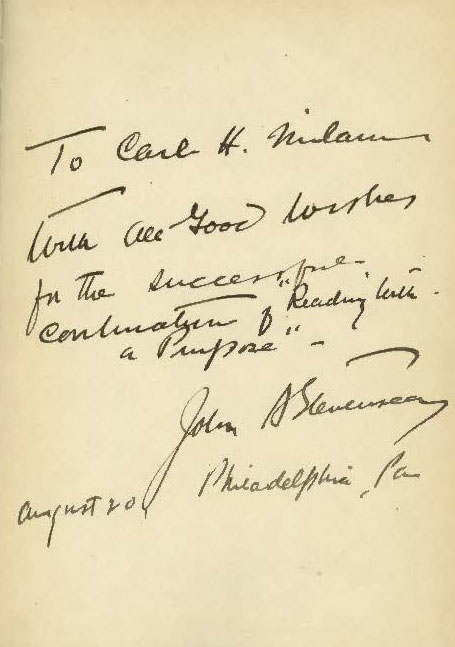 To Carl H. Milam
With all Good Wishes
for the successful
continuation of "Reading With
a Purpose" -
John A Stevenson
Philadelphia, Pa
August 20,